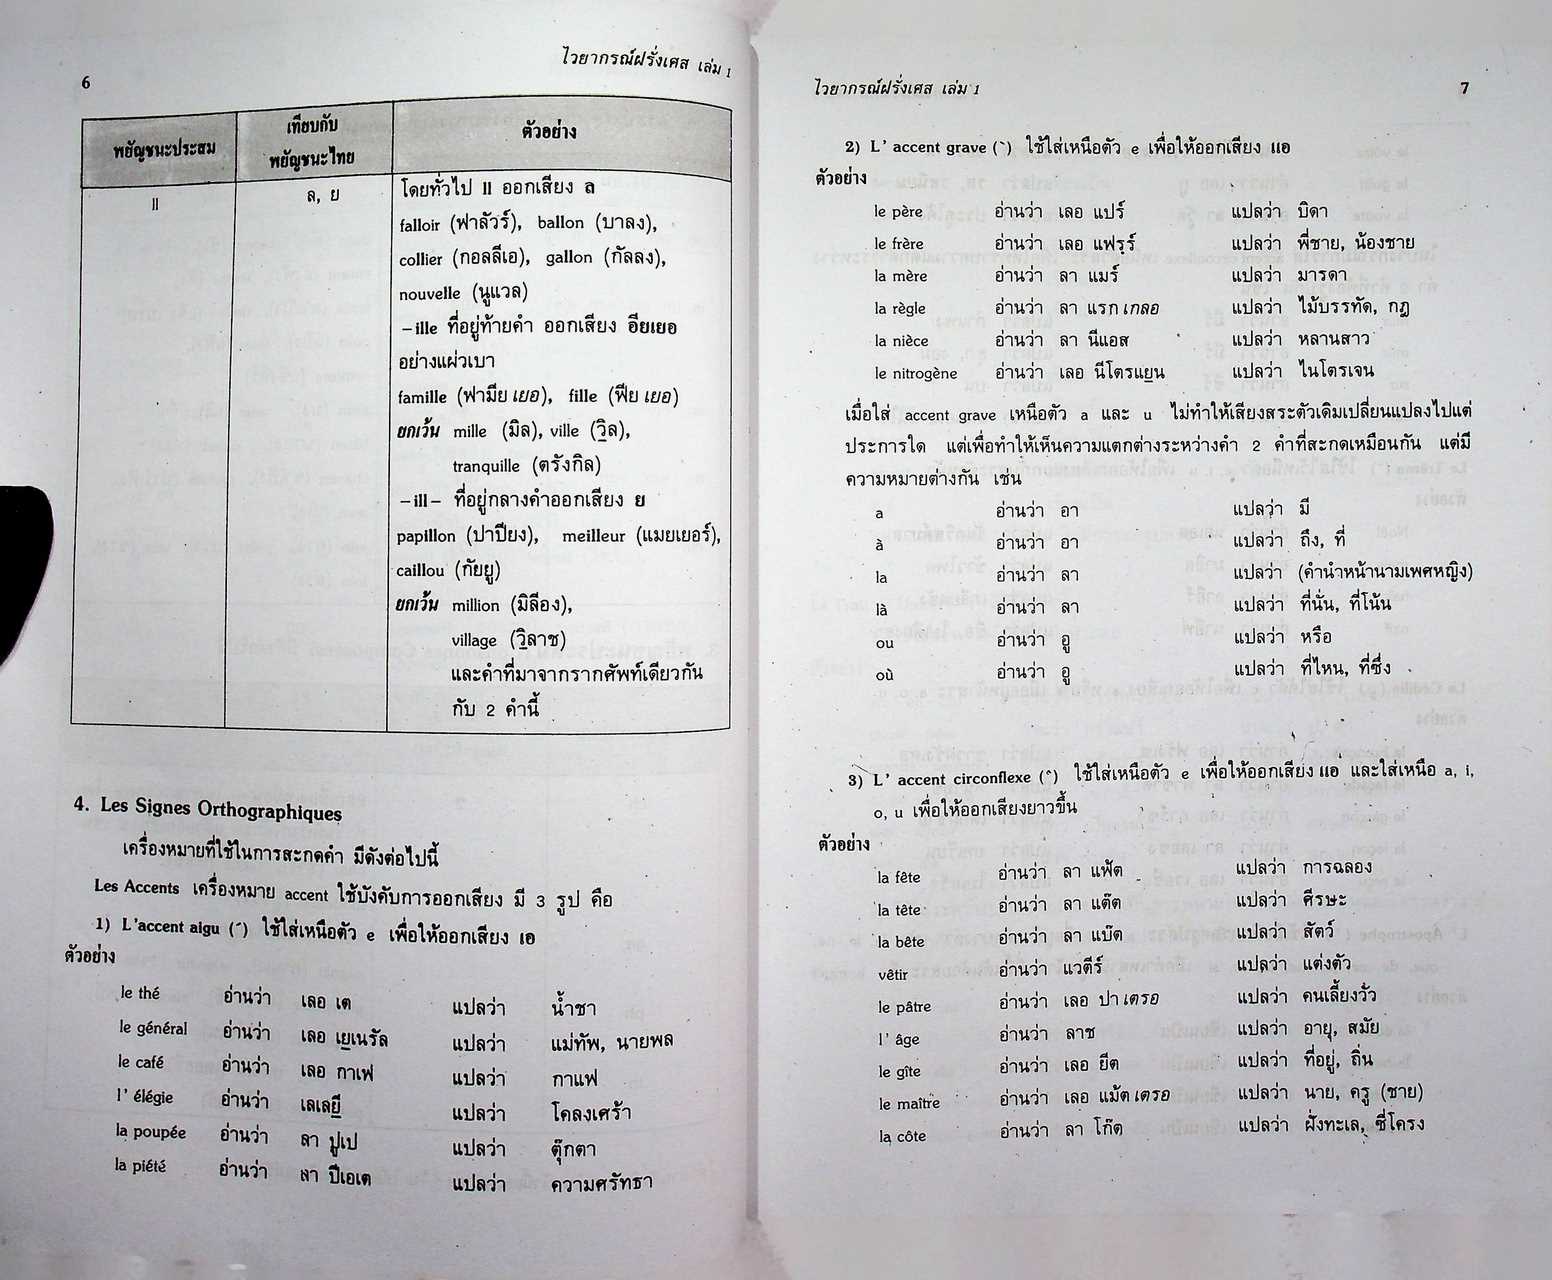 6
ไวยากรณ์ฝรั่งเศส เล่ม 1
พยัญชนะประสม เทียบกับพยัญชนะไทย ตัวอย่าง
ll ล, ย โดยทั่วไป ll ออกเสียง ล
falloir (ฟาลัวร์), ballon (บาลง),
collier (กอลลีเอ), gallon (กัลลง),
nouvelle (นูแวล)
–ille ที่อยู่ท้ายคำ ออกเสียง อียเยอ
อย่างแผ่วเบา
famille (ฟามีย เยอ), fille (ฟีย เยอ)
ยกเว้น mille (มิล), ville (วิล),
tranquille (ตรังกิล)
–ill– ที่อยู่กลางคำออกเสียง ย
papillon (ปาปียง), meilleur (แมยเยอร์),
caillou (กัยยู)
ยกเว้น million (มิลีอง),
village (วิลาช)
และคำที่มาจากรากศัพท์เดียวกัน
กับ 2 คำนี้
4. Les Signes Orthographiques
เครื่องหมายที่ใช้ในการสะกดคำ มีดังต่อไปนี้
Les Accents เครื่องหมาย accent ใช้บังคับการออกเสียง มี 3 รูป คือ
1) L'accent aigu (´) ใช้ใส่เหนือตัว e เพื่อให้ออกเสียง เอ
ตัวอย่าง
le thé อ่านว่า เลอ เต แปลว่า น้ำชา
le général อ่านว่า เลอ เยเนรัล แปลว่า แม่ทัพ, นายพล
le café อ่านว่า เลอ กาเฟ แปลว่า กาแฟ
l' élégie อ่านว่า เลเลยี แปลว่า โคลงเศร้า
la poupée อ่านว่า ลา ปูเป แปลว่า ตุ๊กตา
la piété อ่านว่า ลา ปีเอเต แปลว่า ความศรัทธา
ไวยากรณ์ฝรั่งเศส เล่ม 1
7
2) L' accent grave (`) ใช้ใส่เหนือตัว e เพื่อให้ออกเสียง แอ
ตัวอย่าง
le père อ่านว่า เลอ แปร์ แปลว่า บิดา
le frère อ่านว่า เลอ แฟรฺร์ แปลว่า พี่ชาย, น้องชาย
la mère อ่านว่า ลา แมร์ แปลว่า มารดา
la règle อ่านว่า ลา แรก เกลอ แปลว่า ไม้บรรทัด, กฎ
la nièce อ่านว่า ลา นีแอส แปลว่า หลานสาว
le nitrogène อ่านว่า เลอ นีโตรแยน แปลว่า ไนโตรเจน
เมื่อใส่ accent grave เหนือตัว a และ u ไม่ทำให้เสียงสระตัวเดิมเปลี่ยนแปลงไปแต่
ประการใด แต่เพื่อทำให้เห็นความแตกต่างระหว่างคำ 2 คำที่สะกดเหมือนกัน แต่มี
ความหมายต่างกัน เช่น
a อ่านว่า อา แปลว่า มี
à อ่านว่า อา แปลว่า ถึง, ที่
la อ่านว่า ลา แปลว่า (คำนำหน้านามเพศหญิง)
là อ่านว่า ลา แปลว่า ที่นั่น, ที่โน้น
ou อ่านว่า อู แปลว่า หรือ
où อ่านว่า อู แปลว่า ที่ไหน, ที่ซึ่ง
3) L' accent circonflexe (ˆ) ใช้ใส่เหนือตัว e เพื่อให้ออกเสียง แอ และใส่เหนือ a, i,
o, u เพื่อให้ออกเสียงยาวขึ้น
ตัวอย่าง
la fête อ่านว่า ลา แฟ้ต แปลว่า การฉลอง
la tête อ่านว่า ลา แต๊ต แปลว่า ศีรษะ
la bête อ่านว่า ลา แบ๊ต แปลว่า สัตว์
vêtir อ่านว่า แวตีร์ แปลว่า แต่งตัว
le pâtre อ่านว่า เลอ ปา เตรอ แปลว่า คนเลี้ยงวัว
l' âge อ่านว่า ลาช แปลว่า อายุ, สมัย
le gîte อ่านว่า เลอ ยีต แปลว่า ที่อยู่, ถิ่น
le maître อ่านว่า เลอ แม้ต เตรอ แปลว่า นาย, ครู (ชาย)
la côte อ่านว่า ลา โก๊ต แปลว่า ฝั่งทะเล, ซี่โครง